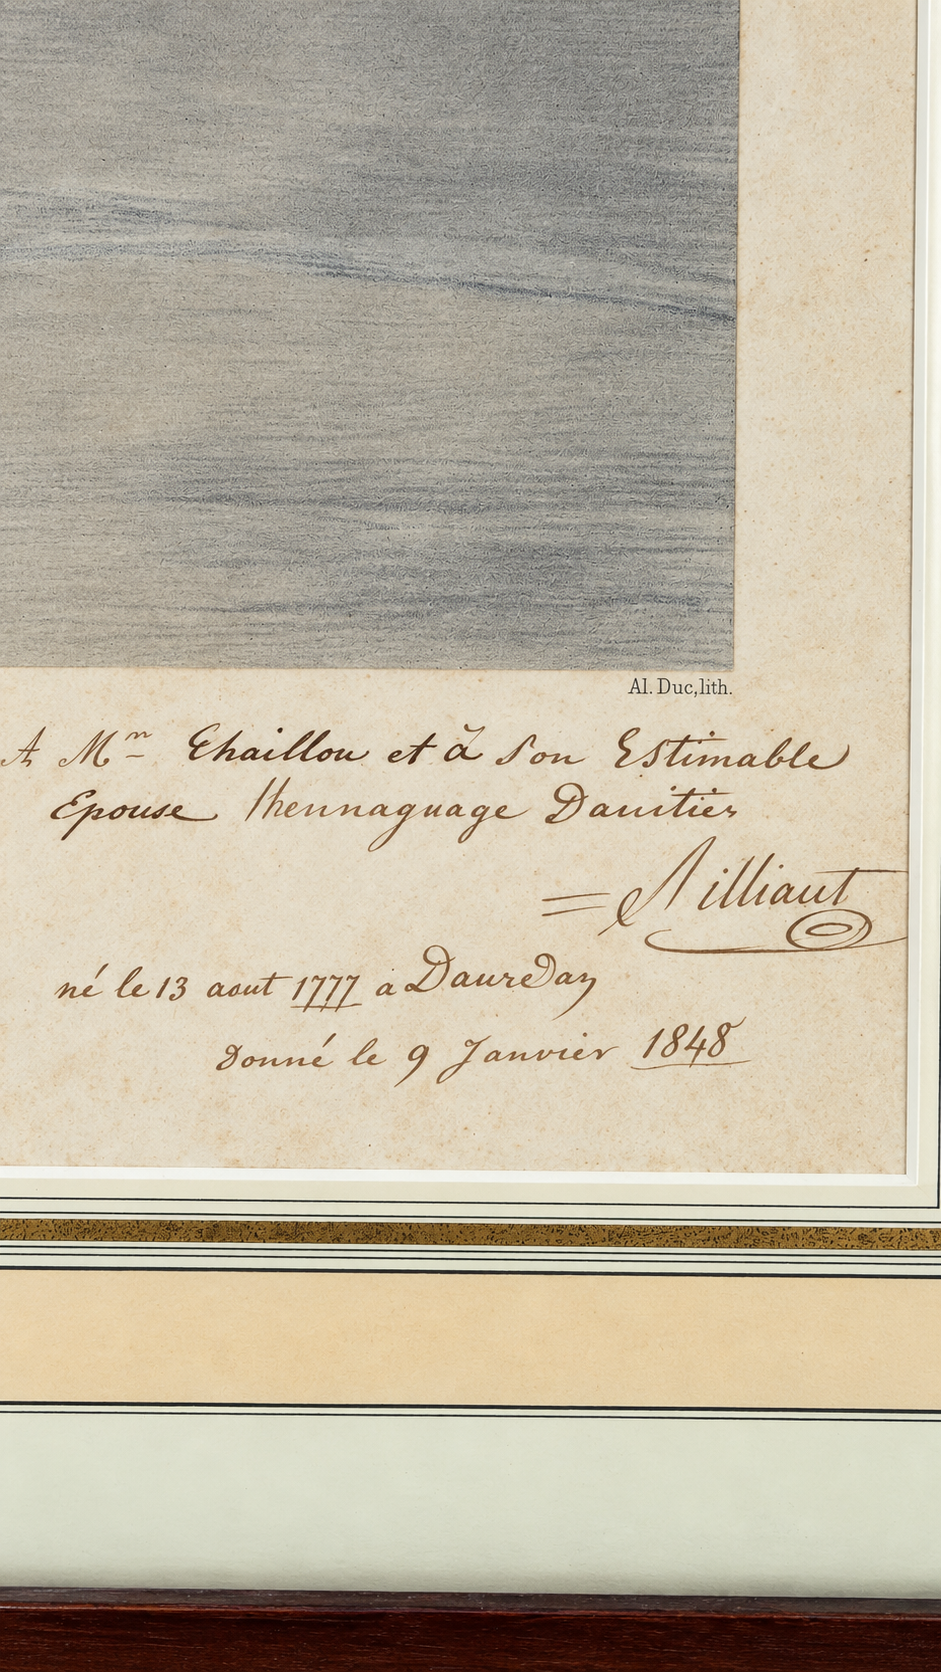 Al. Duc, lith.
A Mm Chaillou et à son Estimable
Epouse Danitier
= Silliaut
né le 13 aout 1777 a Dauredan
Donné le 9 Janvier 1848